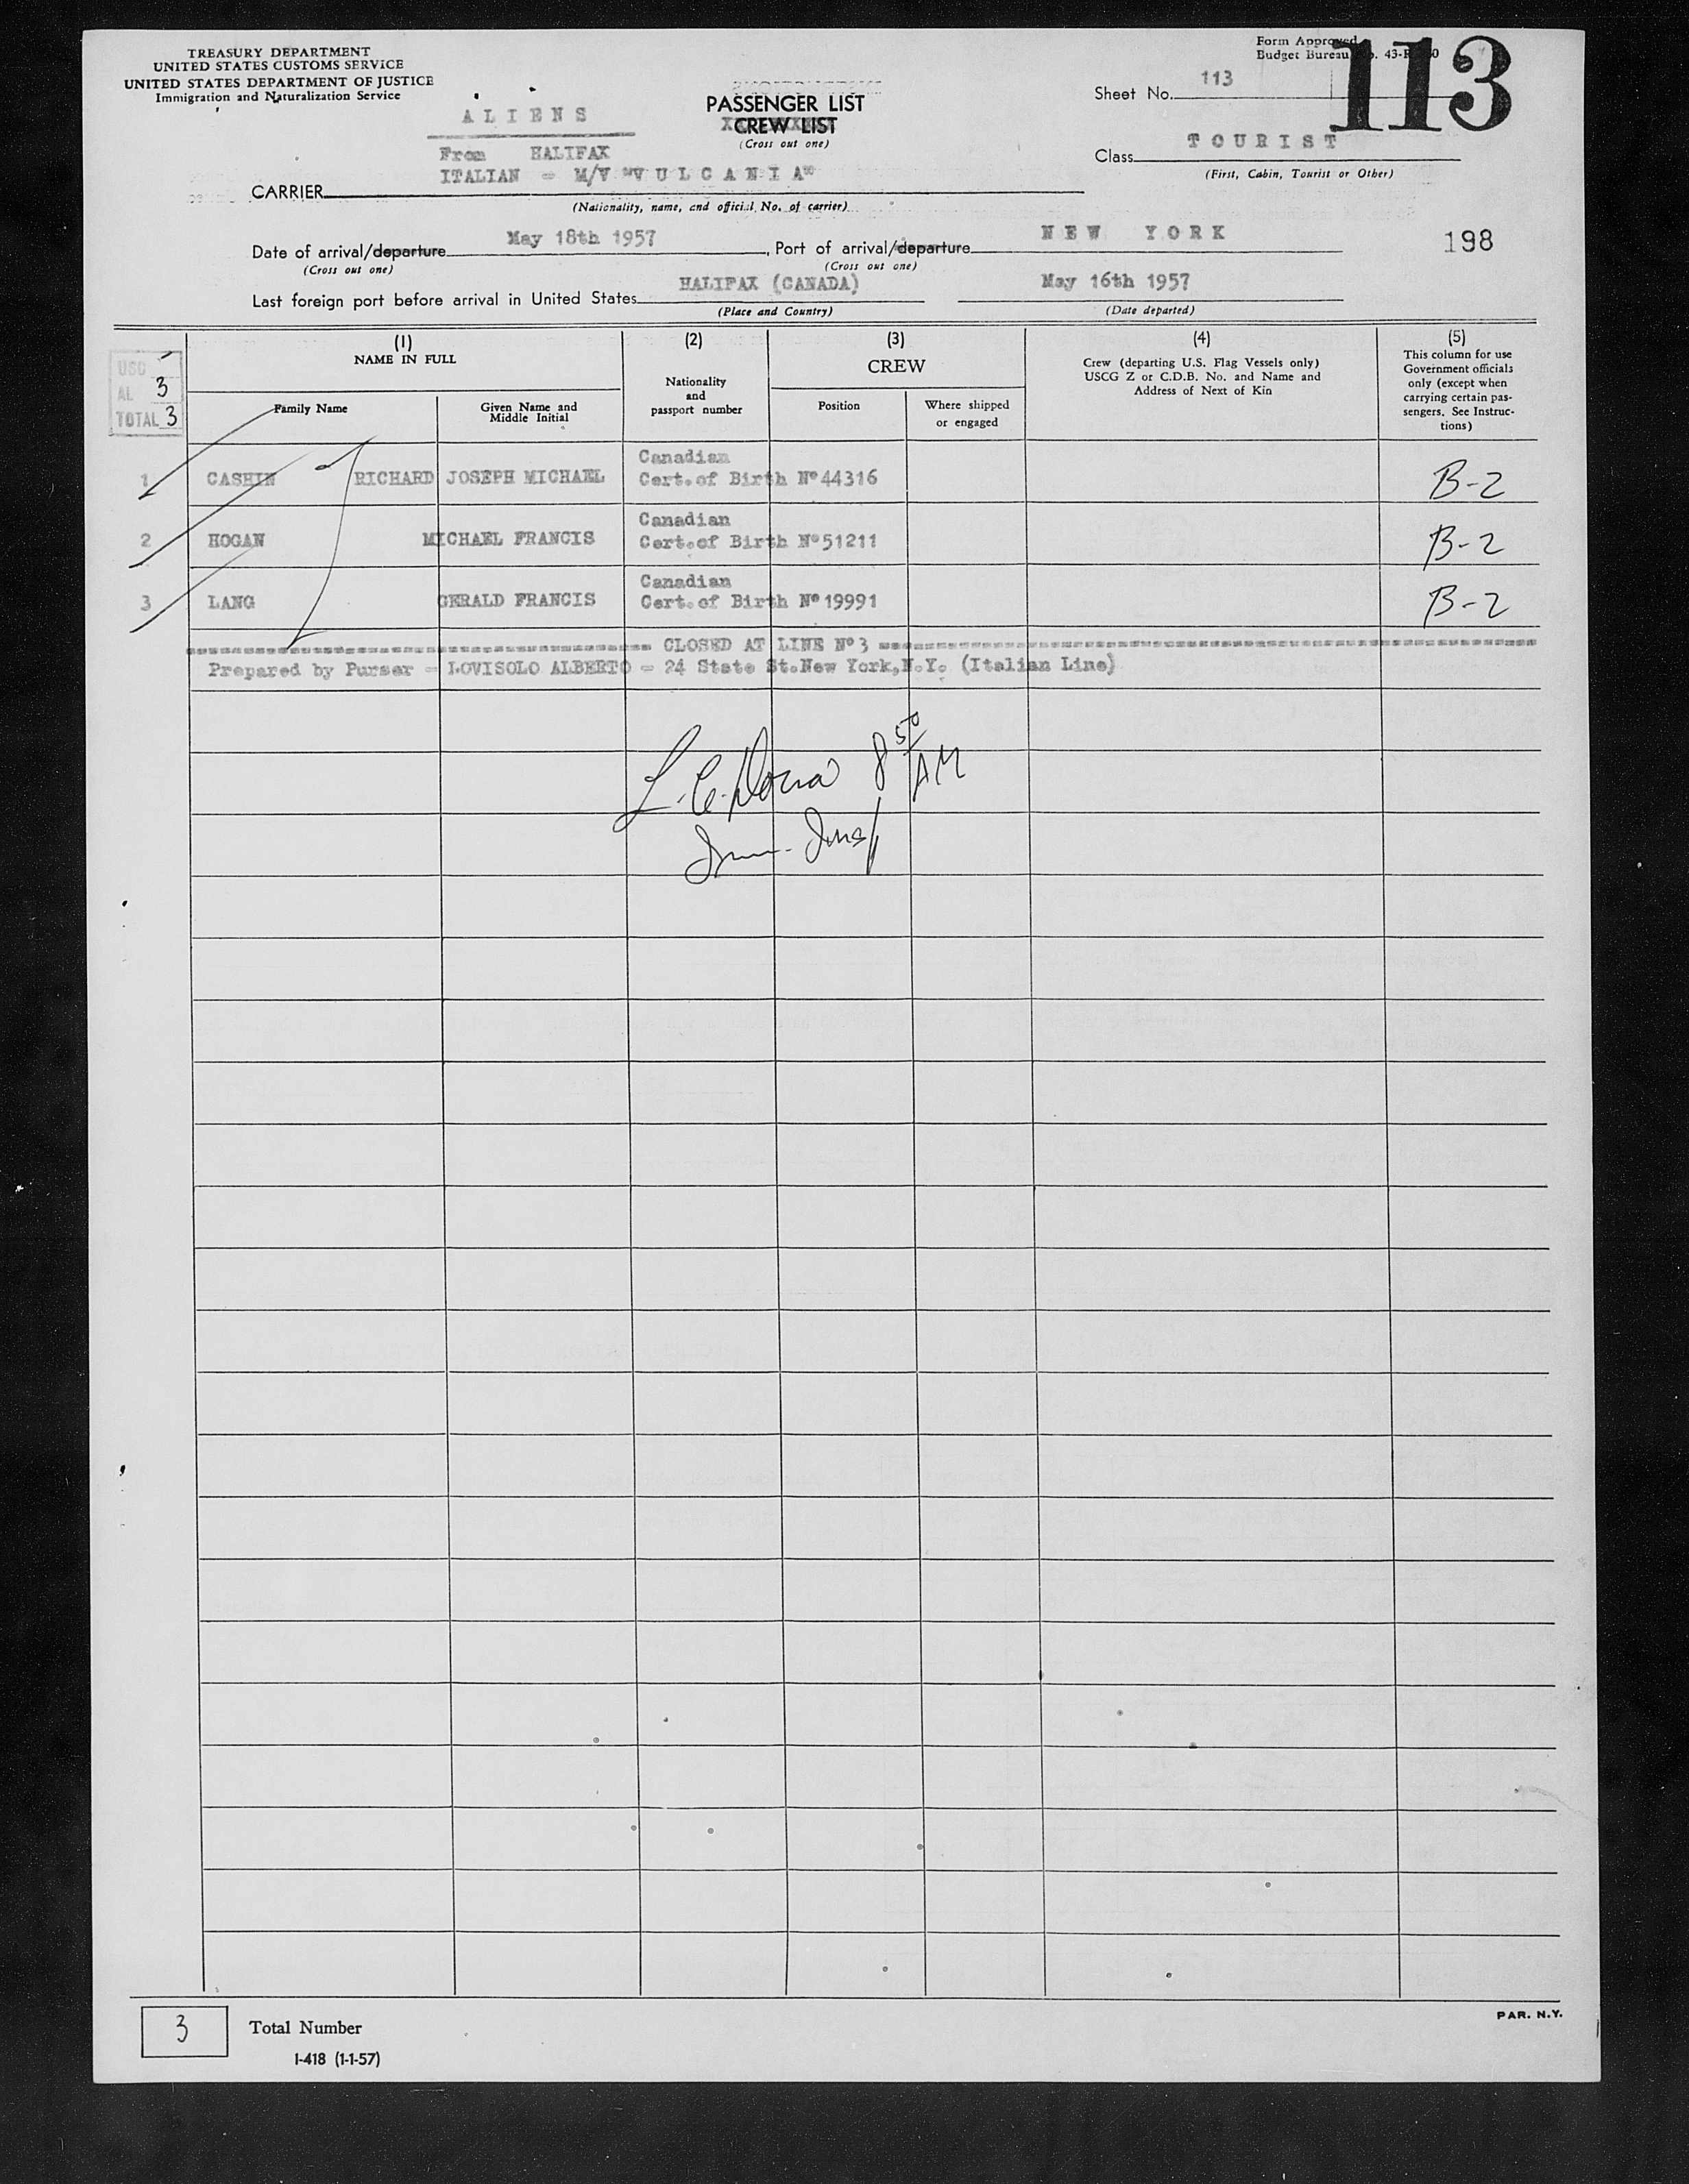 TREASURY DEPARTMENT
UNITED STATES CUSTOMS SERVICE
UNITED STATES DEPARTMENT OF JUSTICE
Immigration and Naturalization Service
Form Approved
Budget Bureau No. 43-R
113
A L I E N S
PASSENGER LIST
CREW LIST
(Cross out one)
Sheet No. 113
From HALIFAX
Class T O U R I S T
(First, Cabin, Tourist or Other)
CARRIER ITALIAN = M/V "V U L C A N I A"
(Nationality, name, and official No. of carrier)
Date of arrival/departure May 18th 1957, Port of arrival/departure N E W Y O R K
198
(Cross out one) (Cross out one)
Last foreign port before arrival in United States HALIFAX (CANADA) May 16th 1957
(Place and Country) (Date departed)
USC
AL 3
TOTAL 3
(1)
NAME IN FULL
Family Name
Given Name and
Middle Initial
(2)
Nationality
and
passport number
(3)
CREW
Position
Where shipped
or engaged
(4)
Crew (departing U.S. Flag Vessels only)
USCG Z or C.D.B. No. and Name and
Address of Next of Kin
(5)
This column for use
Government officials
only (except when
carrying certain pas-
sengers. See Instruc-
tions)
Canadian
1 CASHIN RICHARD JOSEPH MICHAEL Cert.of Birth Nº 44316 B-2
Canadian
2 HOGAN MICHAEL FRANCIS Cert.of Birth Nº 51211 B-2
Canadian
3 LANG GERALD FRANCIS Cert.of Birth Nº 19991 B-2
CLOSED AT LINE Nº 3
Prepared by Purser = LOVISOLO ALBERTO = 24 State St.New York,N.Y. (Italian Line)
8 50 AM
3 Total Number
PAR. N.Y.
I-418 (1-1-57)